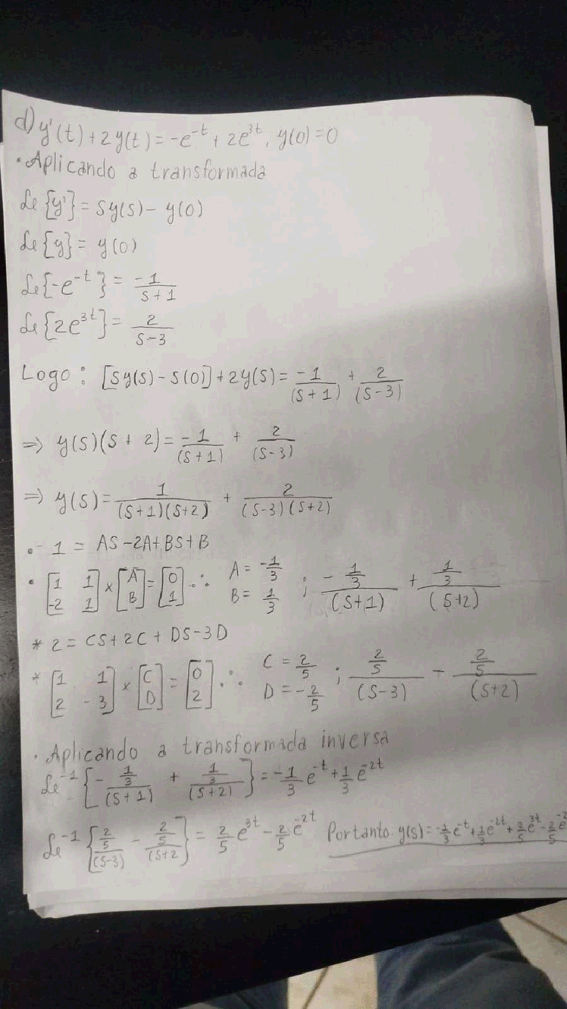 d) y'(t) + 2y(t) = -e^{-t} + 2e^{3t}, y(0) = 0
• Aplicando a transformada
ℒ{y'} = Sy(S) - y(0)
ℒ{y} = y(0)
ℒ{-e^{-t}} = -1/(S+1)
ℒ{2e^{3t}} = 2/(S-3)
Logo: [Sy(S) - S(0)] + 2y(S) = -1/(S+1) + 2/(S-3)
⇒ y(S)(S+2) = -1/(S+1) + 2/(S-3)
⇒ y(S) = 1/((S+1)(S+2)) + 2/((S-3)(S+2))
• -1 = AS - 2A + BS + B
• [1 1; -2 1] × [A; B] = [0; 1] ∴ A = -1/3 B = 1/3 ; -(1/3)/(S+1) + (1/3)/(S+2)
* 2 = CS + 2C + DS - 3D
* [1 1; 2 -3] × [C; D] = [0; 2] ∴ C = 2/5 D = -2/5 ; (2/5)/(S-3) - (2/5)/(S+2)
• Aplicando a transformada inversa
ℒ^{-1}{-(1/3)/(S+1) + (1/3)/(S+2)} = -1/3 e^{-t} + 1/3 e^{-2t}
ℒ^{-1}{(2/5)/(S-3) - (2/5)/(S+2} = 2/5 e^{3t} - 2/5 e^{-2t} Portanto: y(s) = -1/3 e^{-t} + 1/3 e^{-2t} + 2/5 e^{3t} - 2/5 e^{-2